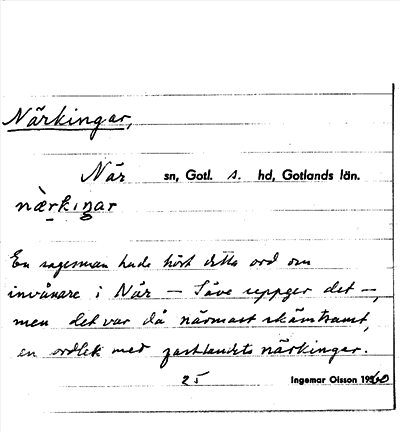 Närkingar,
När sn, Gotl. s. hd, Gotlands län.
nærkiŋar
En sagesman hade hört detta ord om
invånare i När – Säve uppger det –,
men det var då närmast skämtsamt,
en ordlek med fastlandets närkingar.
25 Ingemar Olsson 1960